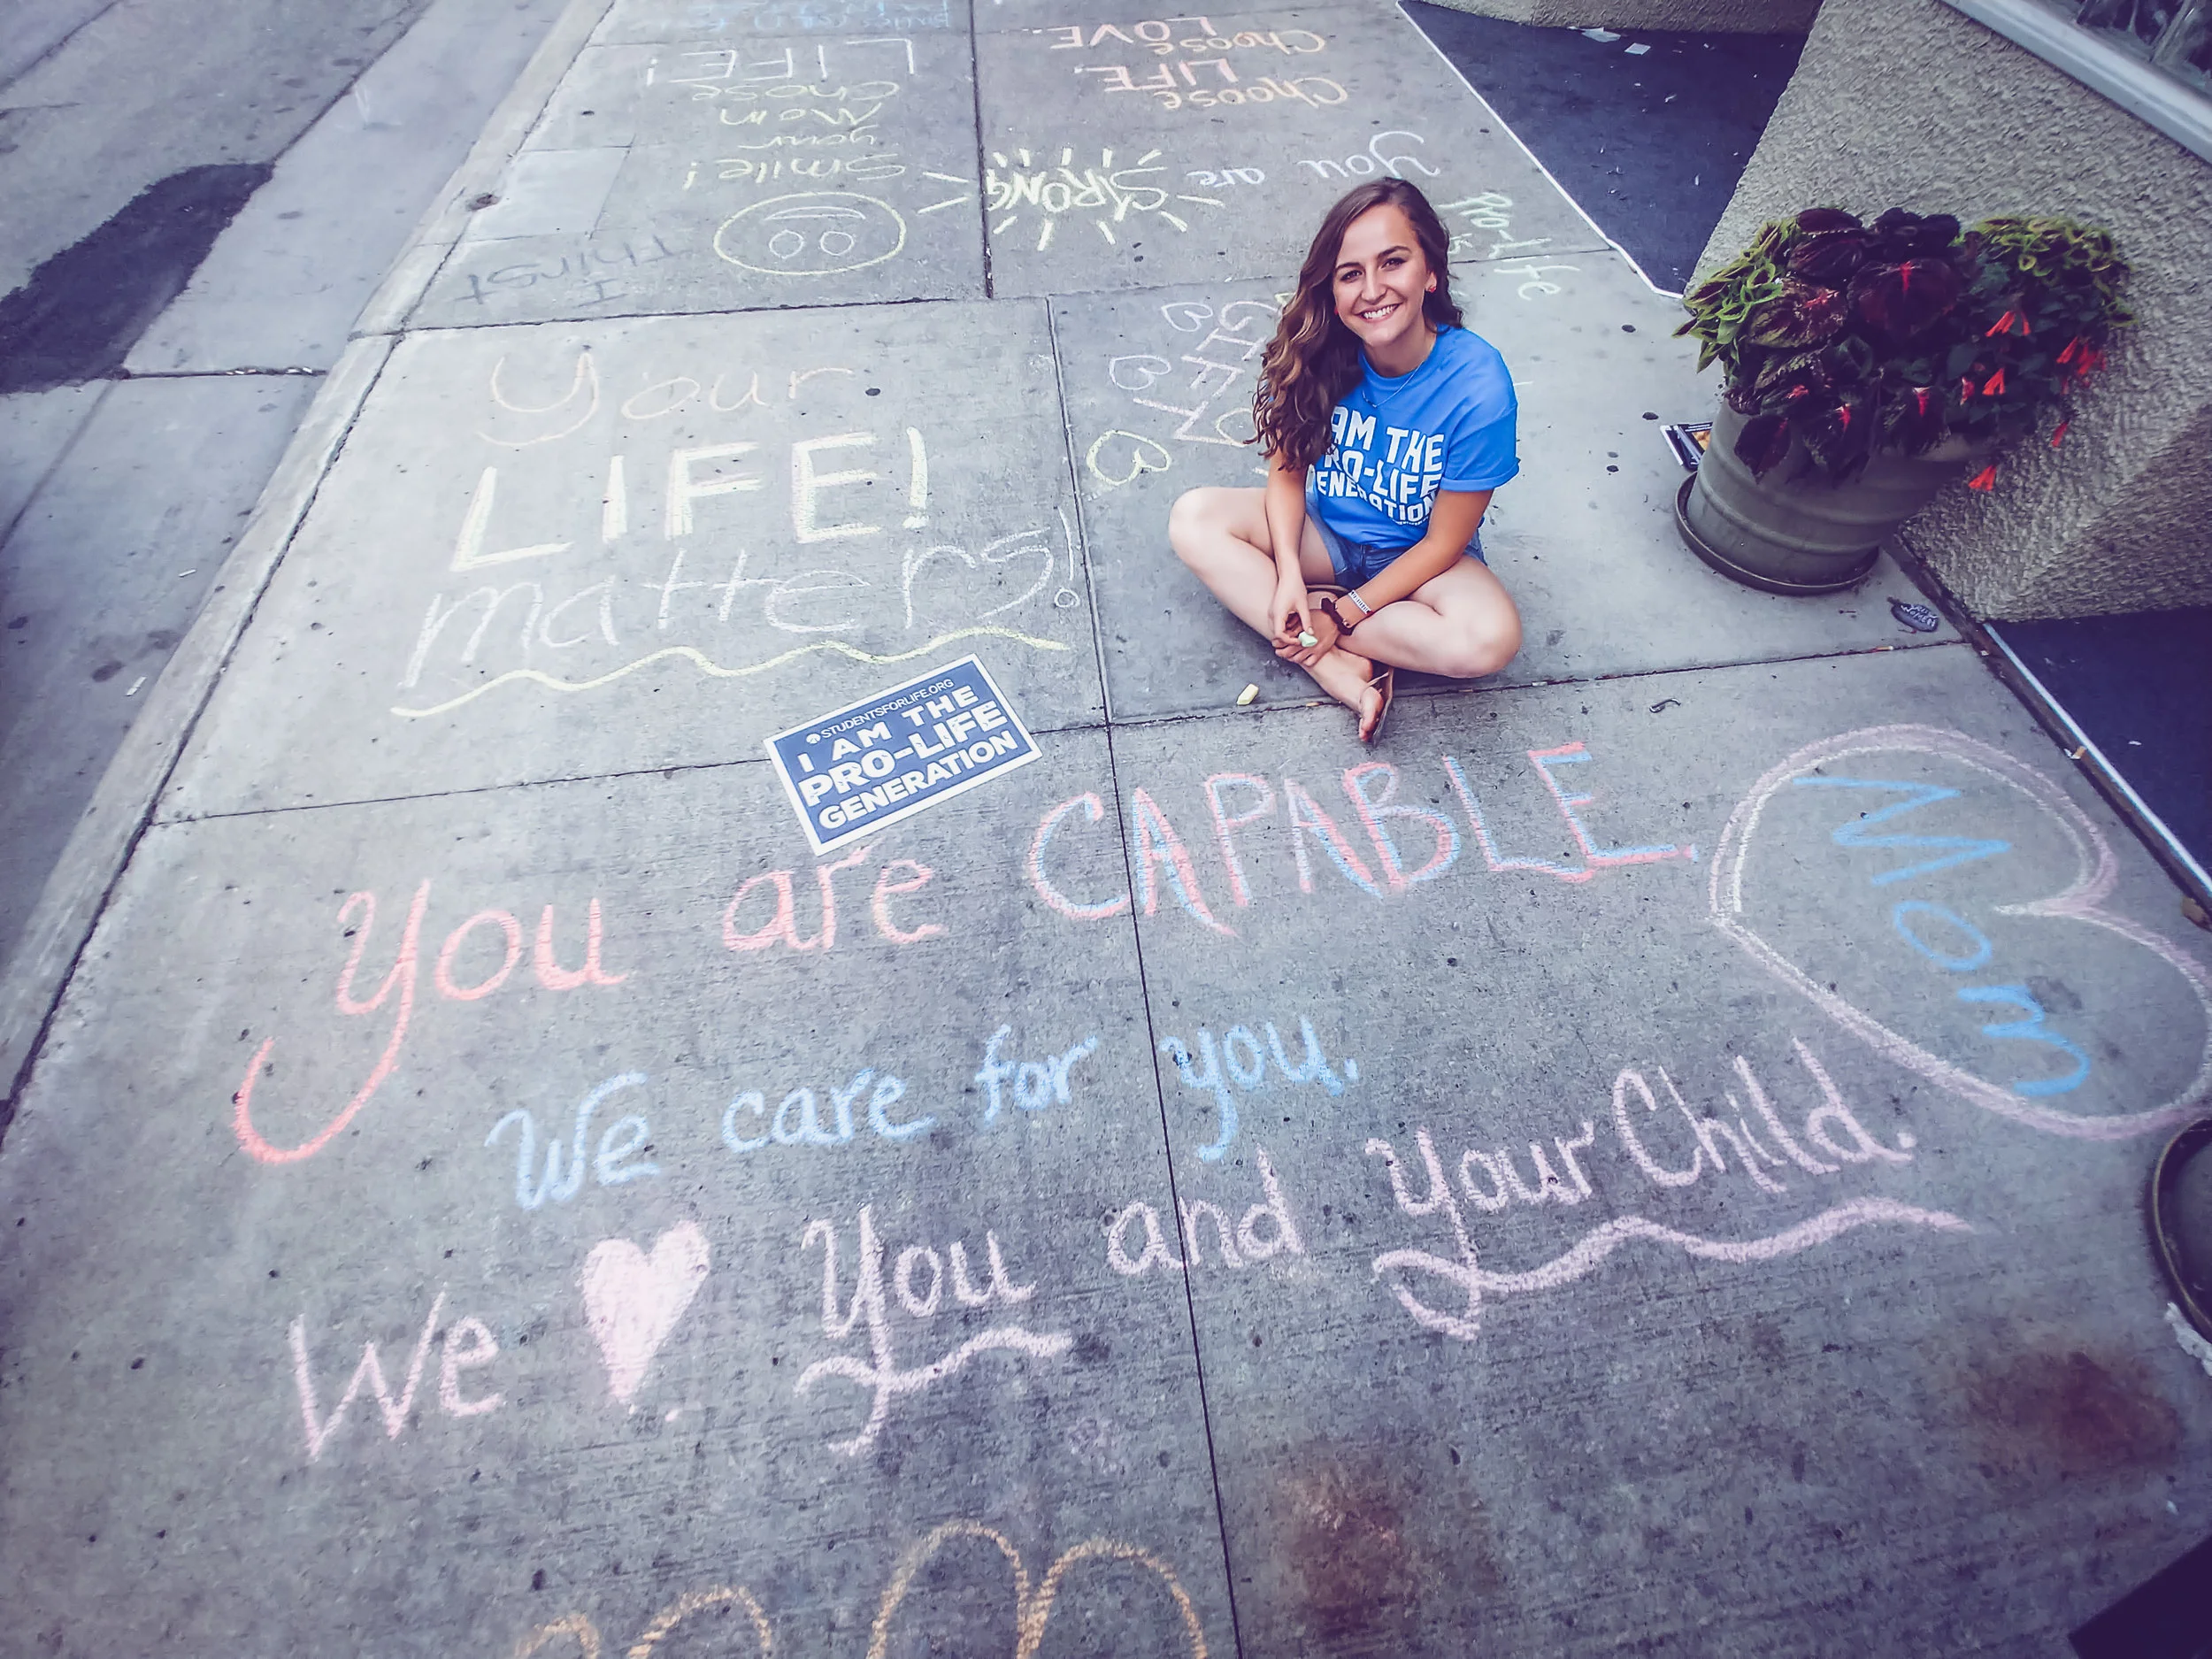 Choose
LOVE.
Choose
LIFE.
LIFE!
chose
Mom
your
Smile!
You are
STRONG
Pro-life
is
I
Your
LIFE!
matters!
AM THE
RO-LIFE
ENERATION
STUDENTSFORLIFE.ORG
I AM THE
PRO-LIFE
GENERATION
You are CAPABLE
Mom
We care for you.
We You and Your Child.